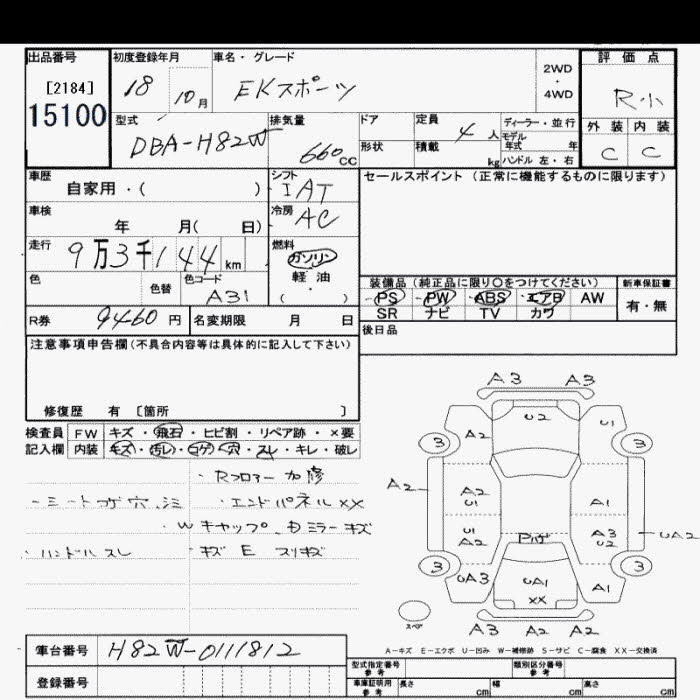 出品番号 初度登録年月 車名・グレード 評価点
[2184] 18 10月 EKスポーツ 2WD・4WD R小
15100
型式 排気量 ドア 定員 ディーラー・並行 外装 内装
DBA-H82W 660cc 4人 モデル年式 年 C C
形状 積載 kg ハンドル 左・右
車歴 シフト セールスポイント (正常に機能するものに限ります)
自家用・( ) IAT
車検 冷房
年 月( 日) AC
走行 燃料
9万3千144km ガソリン
軽油
色 色替 色コード ( )
A31
装備品(純正品に限り〇をつけてください) 新車保証書
PS・PW・ABS・エアB AW 有・無
SR ナビ TV カワ
R券 9460円 名変期限 月 日 後日品
注意事項申告欄(不具合内容等は具体的に記入して下さい)
修復歴 有 [箇所 ]
検査員 FW キズ・飛石・ヒビ割・リペア跡・×要
記入欄 内装 キズ・汚レ・コゲ・穴・スレ・キレ・破レ
・Rフロアー 加修
・シートコゲ穴、シミ ・エンドパネルXX
・Wキャップ、ミラーキズ
・ハンドルスレ ・キズ E スリキズ
A3 A3
U2
A2 U1
3 3
A2 A2 U1 A1
U1 A2 Pハゲ A3 U2 UA2
3 3
UA3 UA1 A1
XX
スペア
A3 A2 A2
A-キズ E-エクボ U-凹み W-補修跡 S-サビ C-腐食 XX-交換済
車台番号 H82W-0111812
登録番号
型式指定番号 参考 類別区分番号 参考
車庫証明用 参考 長さ cm 幅 cm 高さ cm